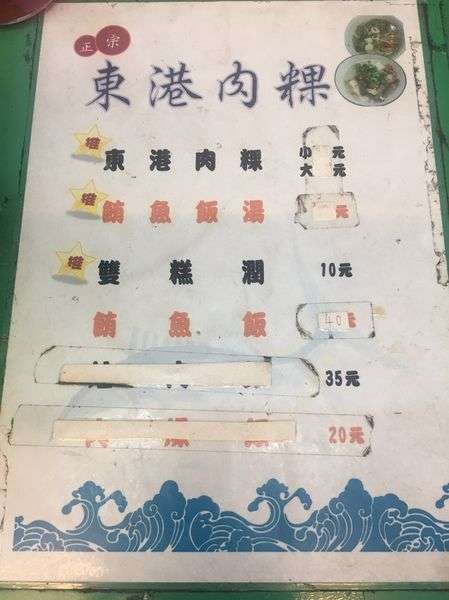 正宗
東港肉粿
東港肉粿 小 元
大 元
鮪魚飯湯 元
雙糕潤 10元
鮪魚飯 40元
35元
20元